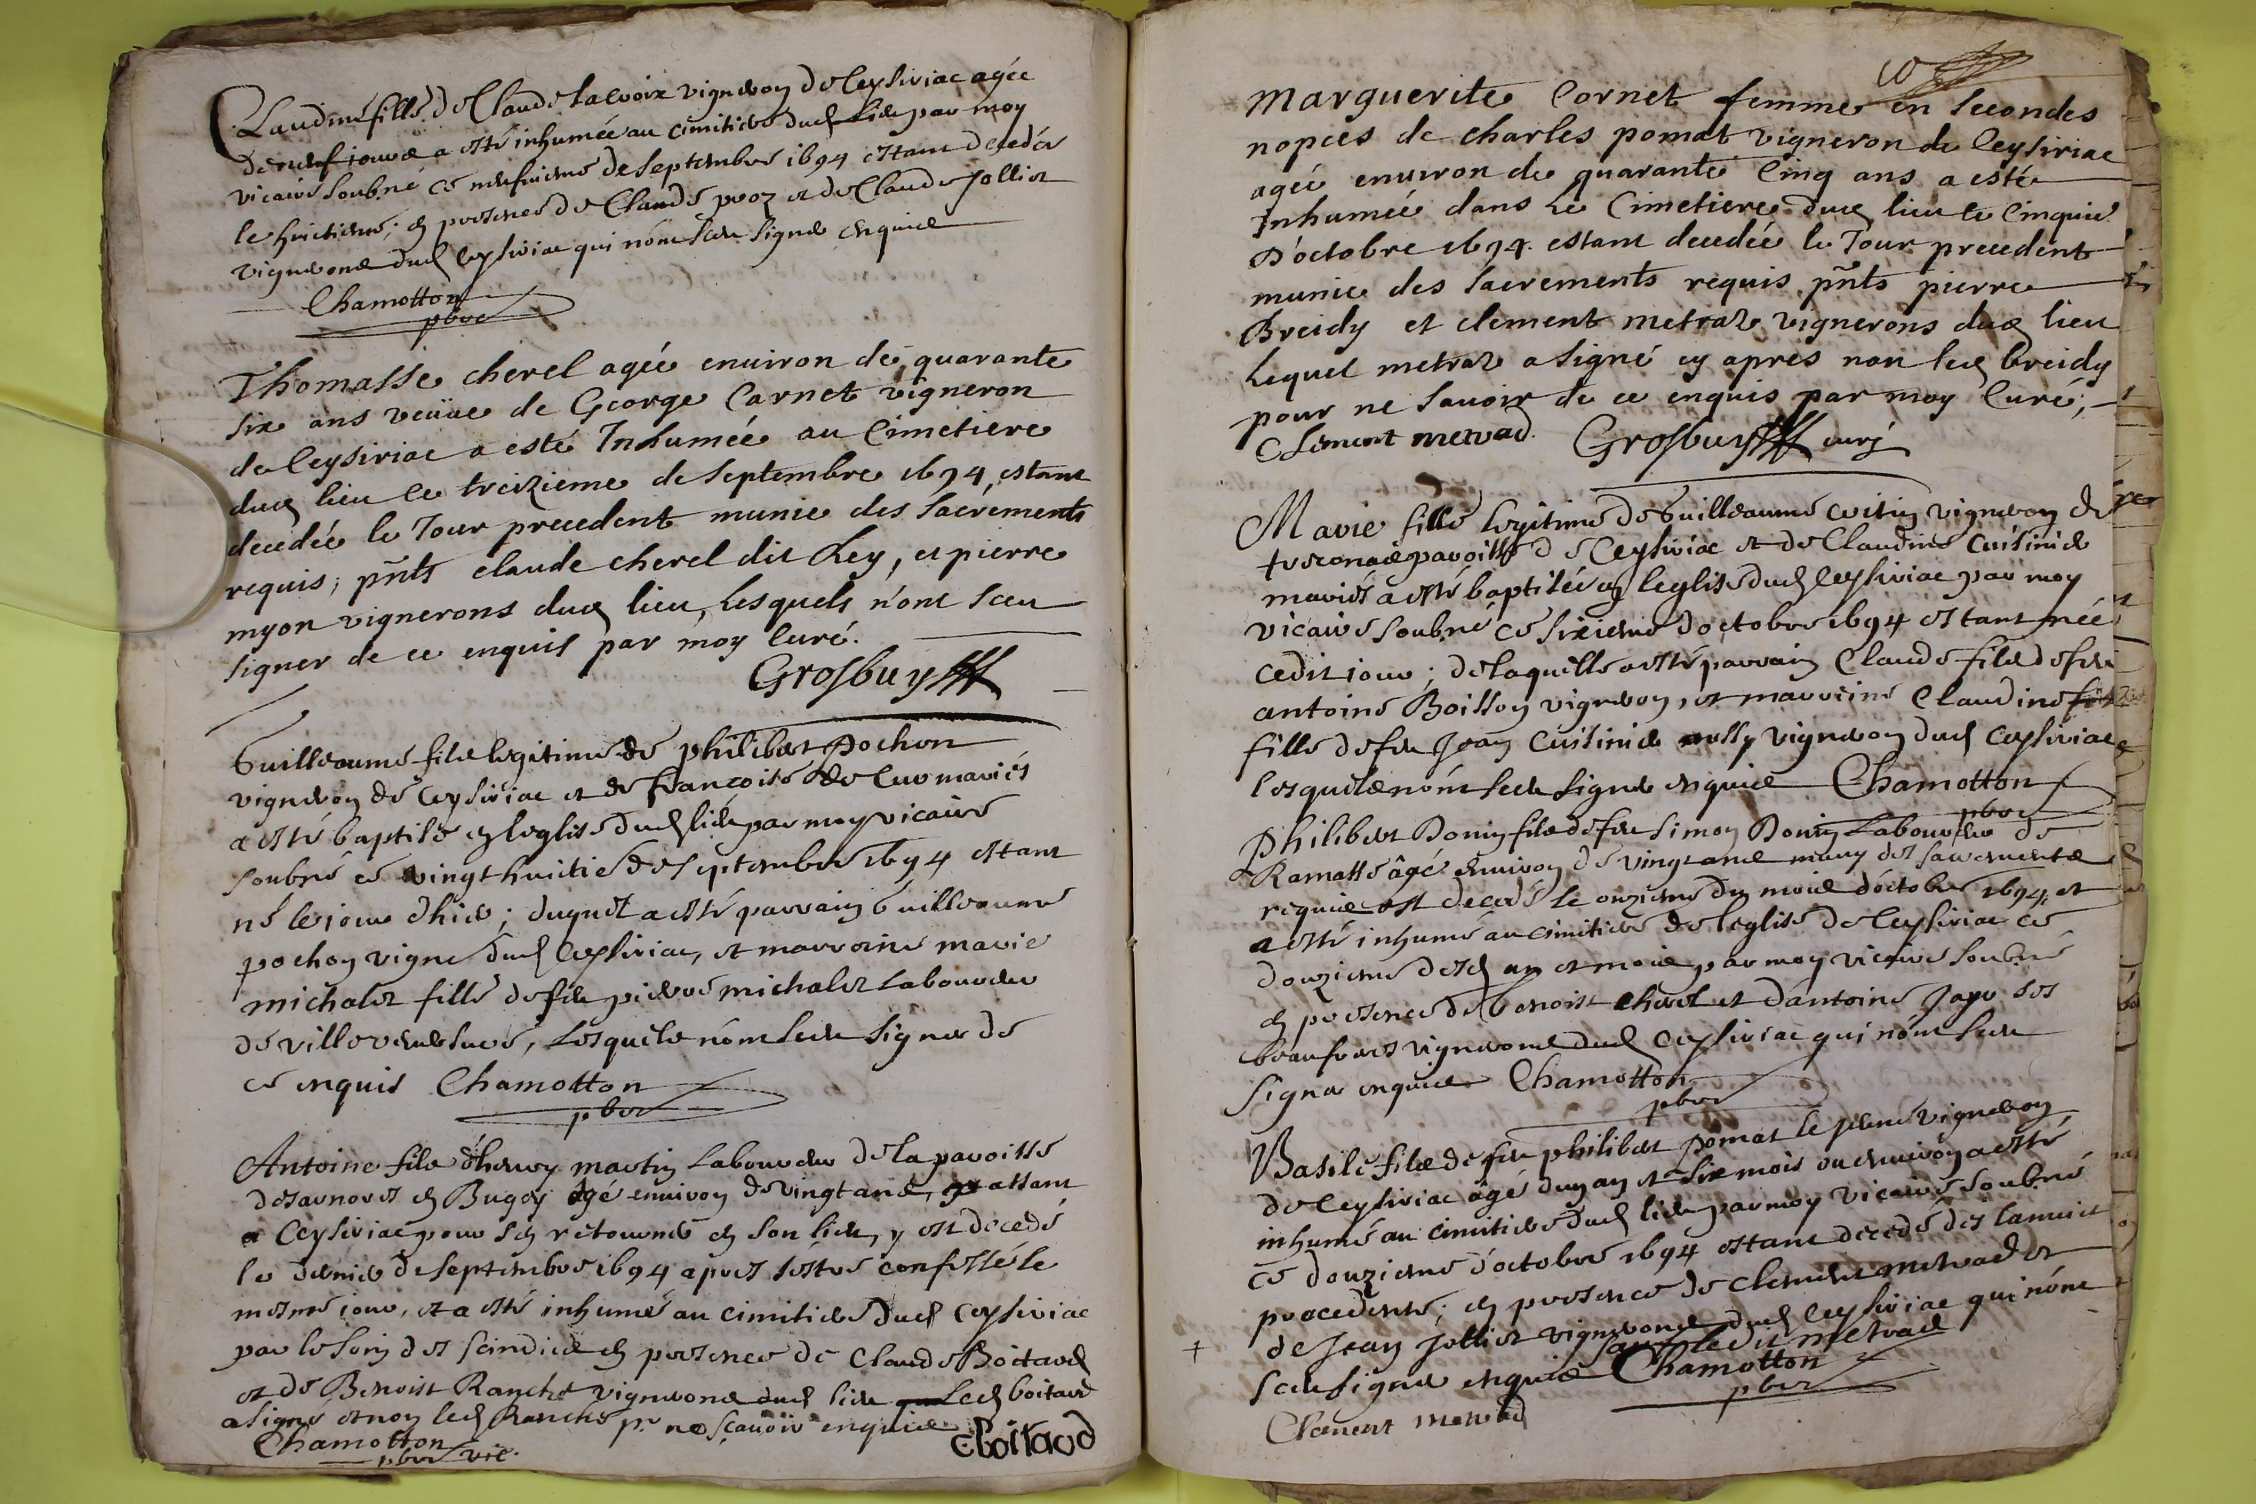 Claudine fille de Claude Lacroix vigneron de Ceysiriac agée
de neuf jours a esté inhumée au cimitiere dud. lieu par moy
vicaire soubné ce neufvieme de septembre 1694 estant decedée
le huictieme; en presence de Claude proz et de Claude Jolliet
vignerons dud Ceysiriac qui n'ont sceu signer enquis
Chamotton
pbre
Thomasse cherel agée enuiron de quarante
six ans veüue de George Carnet vigneron
de Ceysiriac a esté Inhumée au Cimetiere
dud lieu le treizieme de septembre 1694, estant
decedée le Jour precedent munie des sacrements
requis; pnts claude cherel dit Ley, et pierre
myon vignerons dud lieu, Lesquels n'ont sceu
signer de ce enquis par moy Curé.
Grosbuy
Guilleaume fils legitime de philibert Pochon
vigneron de Ceysiriac et de françoise de Cuo mariés
a esté baptisé en l'eglise dud lieu par moy vicaire
soubné ce vingt huictie de septembre 1694 estant
né le jour d'hier; duquel a esté parrain Guilleaume
pochon vigne dud Ceysiriac, et marreine marie
michalet fille de feu pierre michalet Laboureur
de villereversure, Lesquels n'ont sceu signer de
ce enquis Chamotton
pbre
Antoine fils d'henry martin Laboureur de la paroisse
desarnores en Bugey agé enuiron de vingt ans, passant
a Ceysiriac pour s'en retourner en son lieu, y est decedé
le dernier de septembre 1694 apres s'estre confessé le
mesme jour, et a esté inhumé au cimitiere dud Ceysiriac
par le soin des scindics en presence de Claude Boitard
et de Benoist Ranche vignerons dud lieu Led boitard
a signé et non led Ranche pr ne sçauoir enquis
Chamotton
pbre vic.
C boitard
10
Marguerite Cornet femme en secondes
nopces de charles pomat vigneron de Ceysiriac
agée enuiron de quarante Cinq ans a esté
Inhumée dans le Cimetiere dud lieu le Cinquie
D'octobre 1694. estant decedée le Jour precedent
munie des sacrements requis pnts pierre
Breidy et clement metraz vignerons dud lieu
Lequel metraz a signé cy apres non led breidy
pour ne sauoir de ce enquis par moy Curé;
Clement metrad. Grosbuy curé
Marie fille legitime de Guilleaume coitin vigneron de
tresconas paroisse de Ceysiriac et de Claudine Cuisinier
mariés a esté baptisée en l'eglise dud Ceysiriac par moy
vicaire soubné ce sixieme d'octobre 1694 estant née
cedit jour; de laquelle a esté parrain Claude fils de feu
antoine Boisson vigneron, et marreine Claudine
fille de feu Jean Cuisinier aussy vigneron dud Ceysiriac
lesquels n'ont sceu signer enquis Chamotton
pbre
Philibert Donin fils de feu Simon Donin Laboureur de
Ramasse âgé enuiron de vingt ans muny des sacrements
requis est decedé le onzieme du mois d'octobre 1694, et
a esté inhumé au cimitiere de l'eglise de Ceysiriac ce
douzieme desd an et mois par moy vicaire soubné
en presence de benoist cherel et d'antoine Jayr ses
beaufreres vignerons dud Ceysiriac qui n'ont sceu
signer enquis Chamotton
pbre
Basile fils de feu philibert Pomat le jeune vigneron
de Ceysiriac âgé d'un an et six mois ou enuiron a esté
inhumé au cimitiere dud lieu par moy vicaire soubné
ce douzieme d'octobre 1694 estant decedé des la nuict
precedente; en presence de clement metrad et
de Jean Jolliet vignerons dud Ceysiriac qui n'ont
sceu signer enquis sauf ledit metrad
Chamotton
pbre
Clement metrad